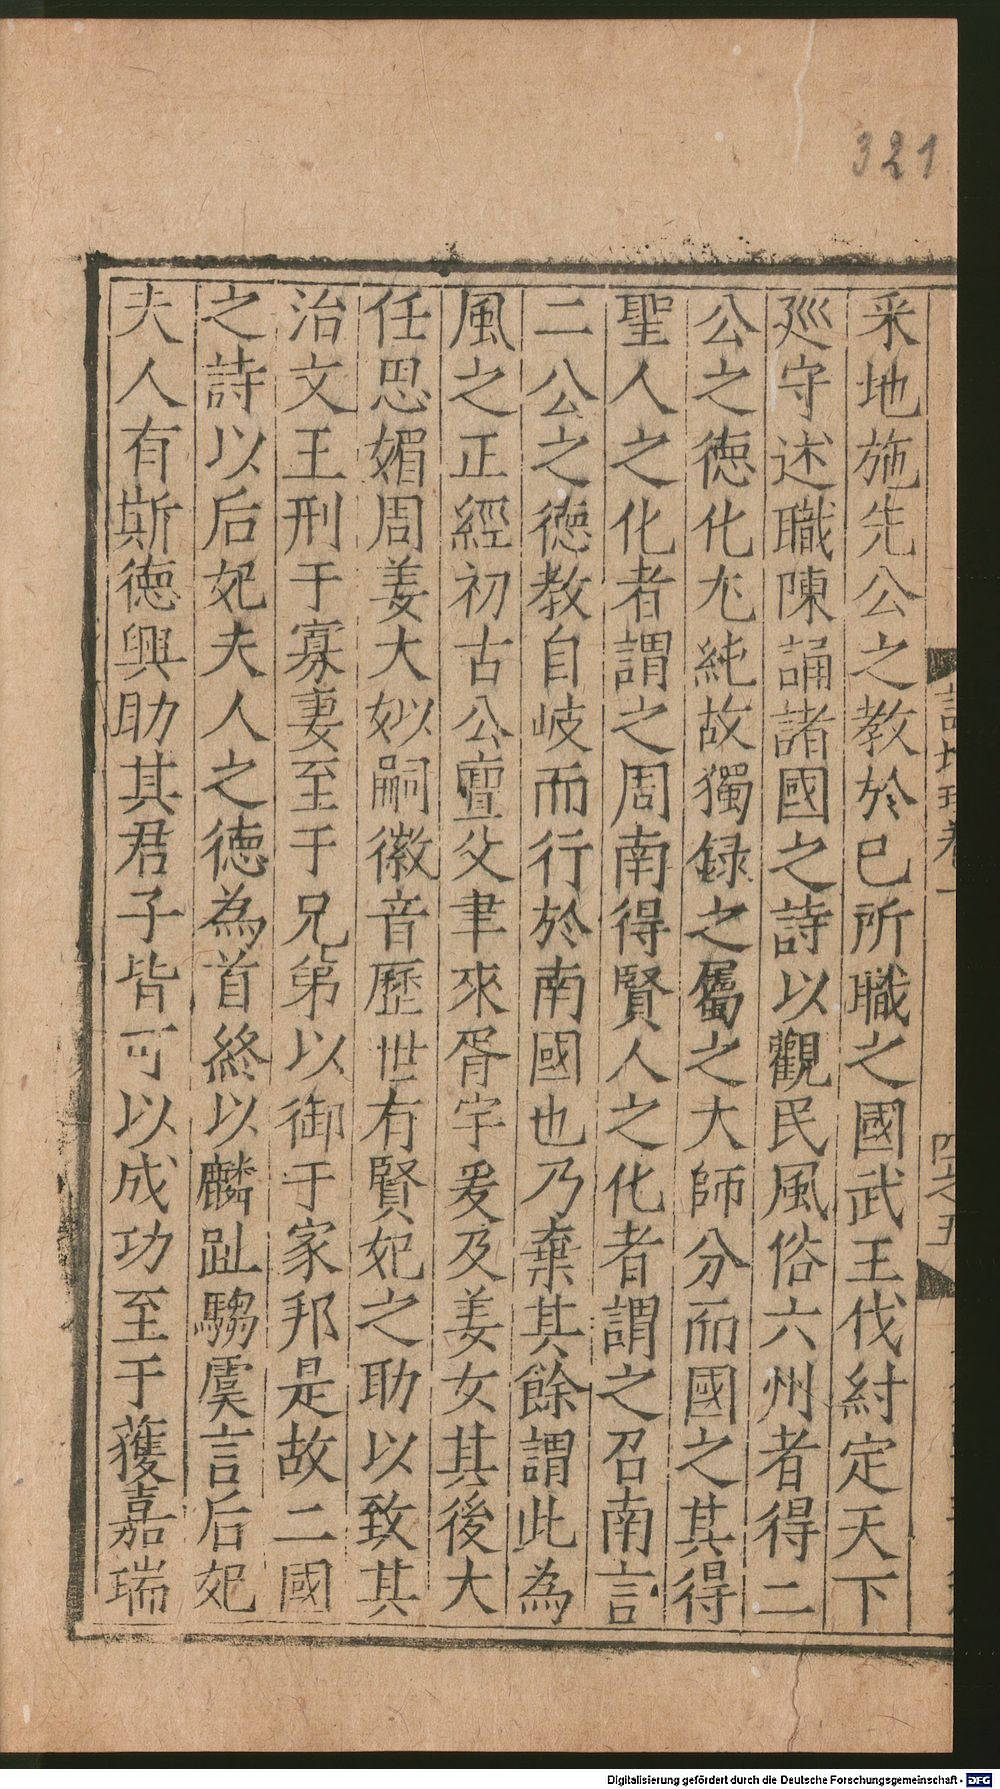 321
采地施先公之教於已所職之國武王伐紂定天下
廵守述職陳誦諸國之詩以觀民風俗六州者得二
公之德化尤純故獨録之屬之大師分而國之其得
聖人之化者謂之周南得賢人之化者謂之召南言
二公之德教自岐而行於南國也乃棄其餘謂此為
風之正經初古公亶父聿來胥宇爰及姜女其後大
任思媚周姜大姒嗣徽音歷世有賢妃之助以致其
治文王刑于寡妻至于兄弟以御于家邦是故二國
之詩以后妃夫人之德為首終以麟趾騶虞言后妃
夫人有斯德興助其君子皆可以成功至于獲嘉瑞
Digitalisierung gefördert durch die Deutsche Forschungsgemeinschaft - DFG